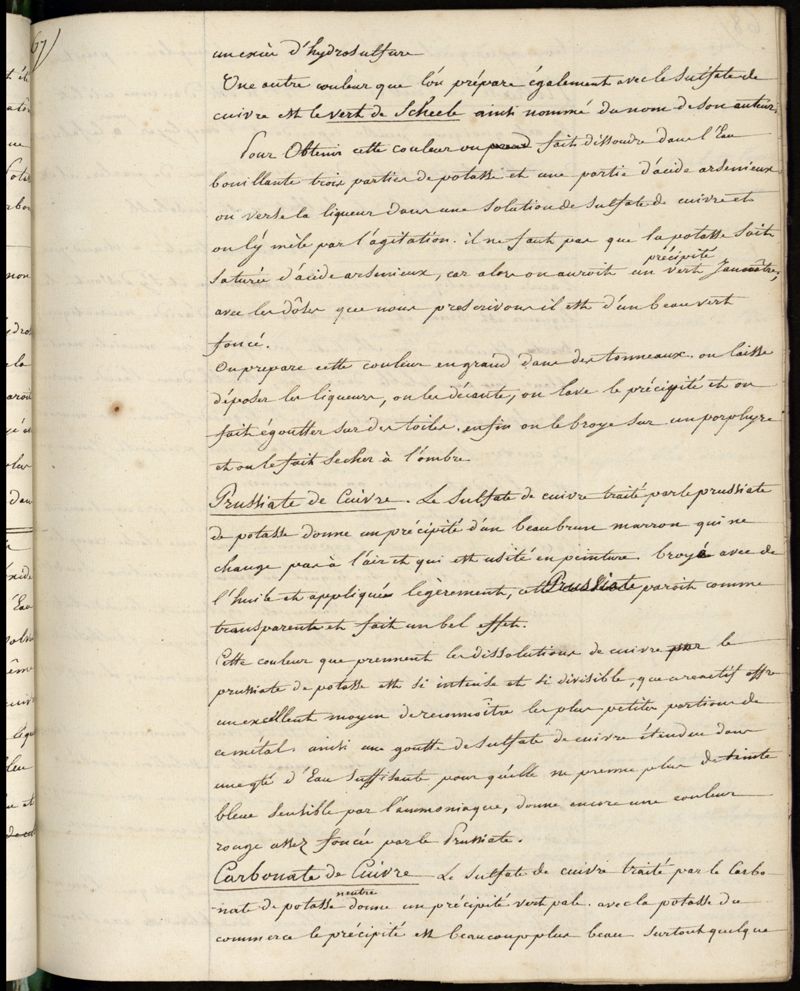 67)
un excès d'hydrosulfure
Une autre couleur que l'on prépare également avec le sulfate de
cuivre est le vert de Scheele ainsi nommé du nom de son auteur.
Pour Obtenir cette couleur on prend fait dissoudre dans l'Eau
bouillante trois parties de potasse et une partie d'acide arsenieux
on verse la liqueur dans une solution de sulfate de cuivre et
on l'y mêle par l'agitation. il ne faut pas que la potasse soit
précipité
saturée d'acide arsenieux, car alors on auroit un vert Jaunâtre,
avec les dôses que nous prescrivons il est d'un beau vert
foncé.
On prepare cette couleur en grand dans des tonneaux. on laisse
déposer les liqueurs, on les décante, on lave le précipité et on
fait égoutter sur des toiles. enfin on le broye sur un porphyre
et on le fait secher à l'ombre
Prussiate de Cuivre. Le sulfate de cuivre traité par le prussiate
de potasse donne un précipité d'un beau brun marron qui ne
change pas à l'air et qui est usité en peinture. broyé avec de
l'huile et appliqué légèrement, cette Prussiate paroit comme
transparente et fait un bel effet.
Cette couleur que prennent les dissolutions de cuivre par le
prussiate de potasse est si intense et si divisible, que ce reactif offre
un excellent moyen de reconnoître les plus petites portions de
ce métal. ainsi une goutte de sulfate de cuivre étendue dans
une qté d'Eau suffisante pour qu'elle ne prenne plus de teinte
bleue sensible par l'ammoniaque, donne encore une couleur
rouge assez foncée par le Prussiate.
Carbonate de Cuivre Le sulfate de cuivre traité par le Carbo
neutre
nate de potasse donne un précipité vert pale. avec la potasse du
commerce le précipité est beaucoup plus beau surtout quelque